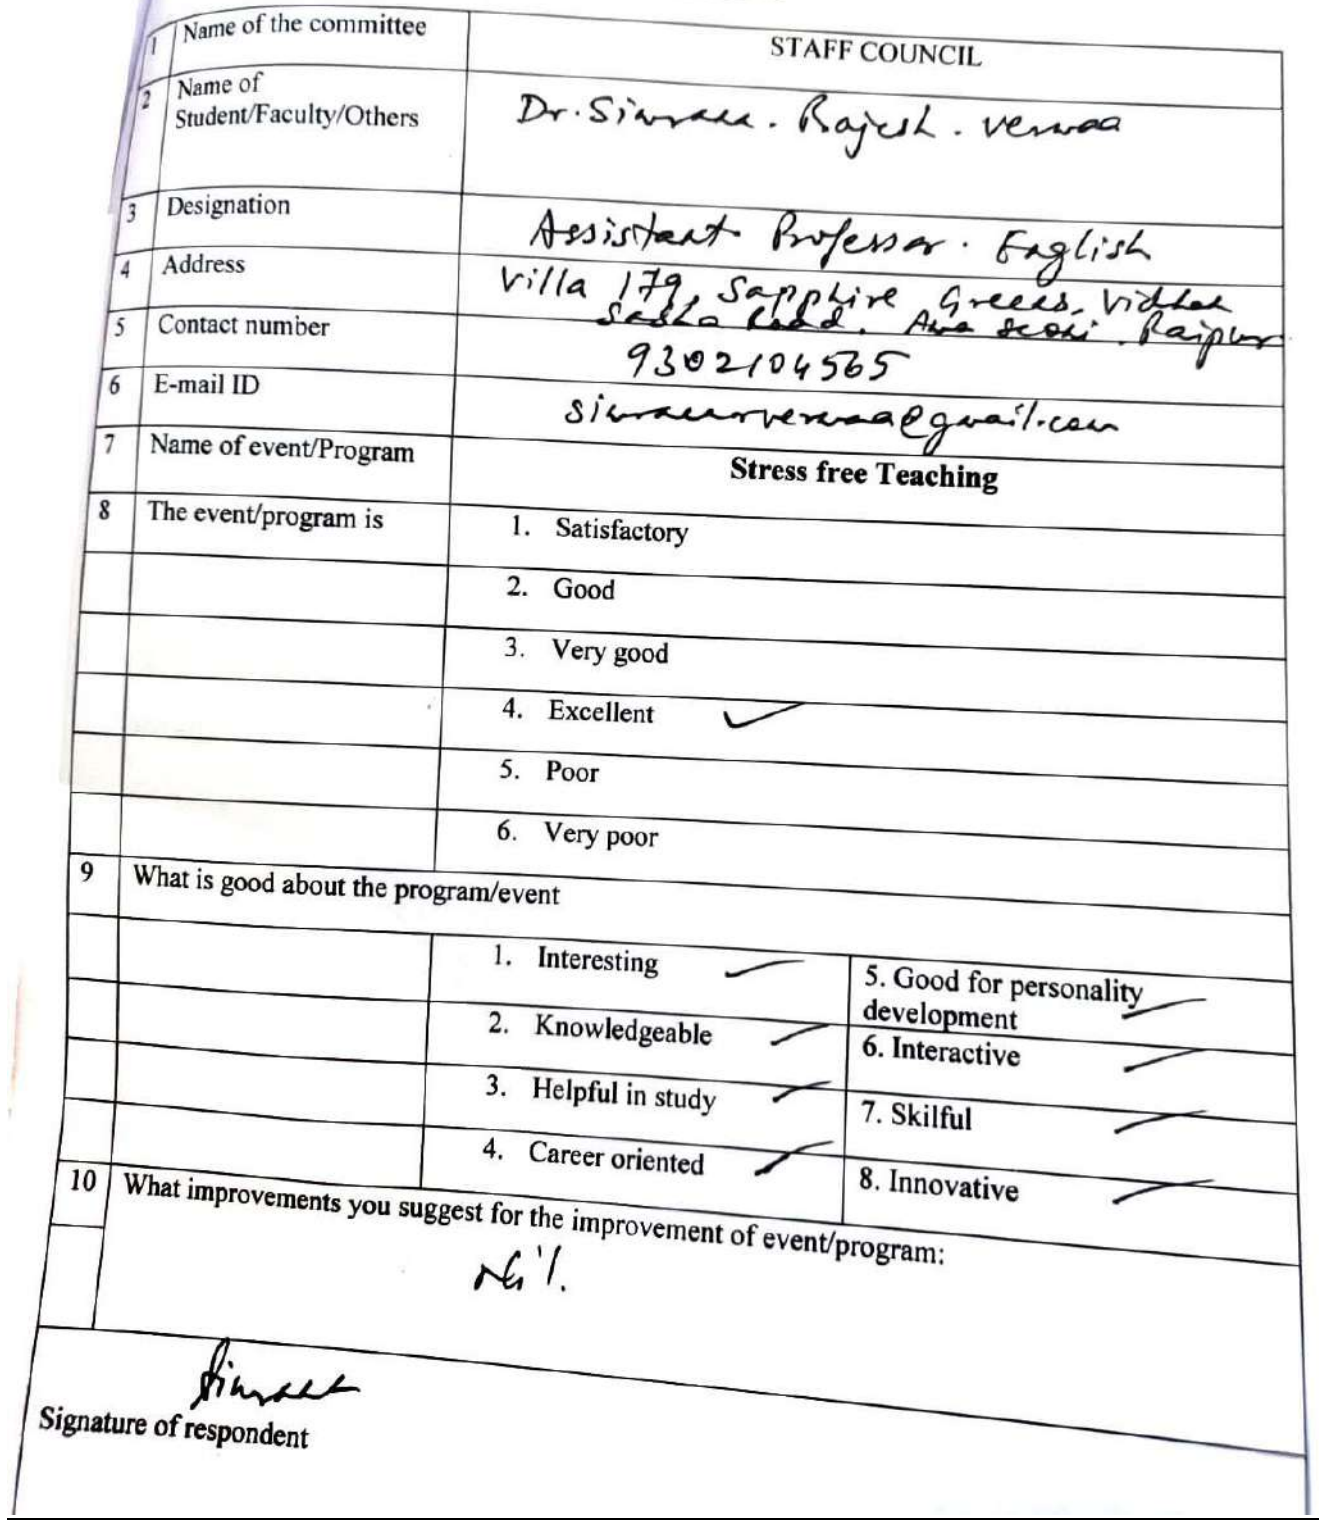 1 Name of the committee STAFF COUNCIL
2 Name of
Student/Faculty/Others Dr. Simran. Rajesh. Vermaa
3 Designation Assistant Professor. English
4 Address Villa 179, Sapphire Greens, Vidhan
Sabha Road, Raipur
5 Contact number 9302104565
6 E-mail ID simranrvermaa@gmail.com
7 Name of event/Program Stress free Teaching
8 The event/program is 1. Satisfactory
2. Good
3. Very good
4. Excellent ✓
5. Poor
6. Very poor
9 What is good about the program/event
1. Interesting ✓ 5. Good for personality ✓
development
2. Knowledgeable ✓ 6. Interactive ✓
3. Helpful in study ✓ 7. Skilful ✓
4. Career oriented ✓ 8. Innovative ✓
10 What improvements you suggest for the improvement of event/program:
Nil.
Simran
Signature of respondent